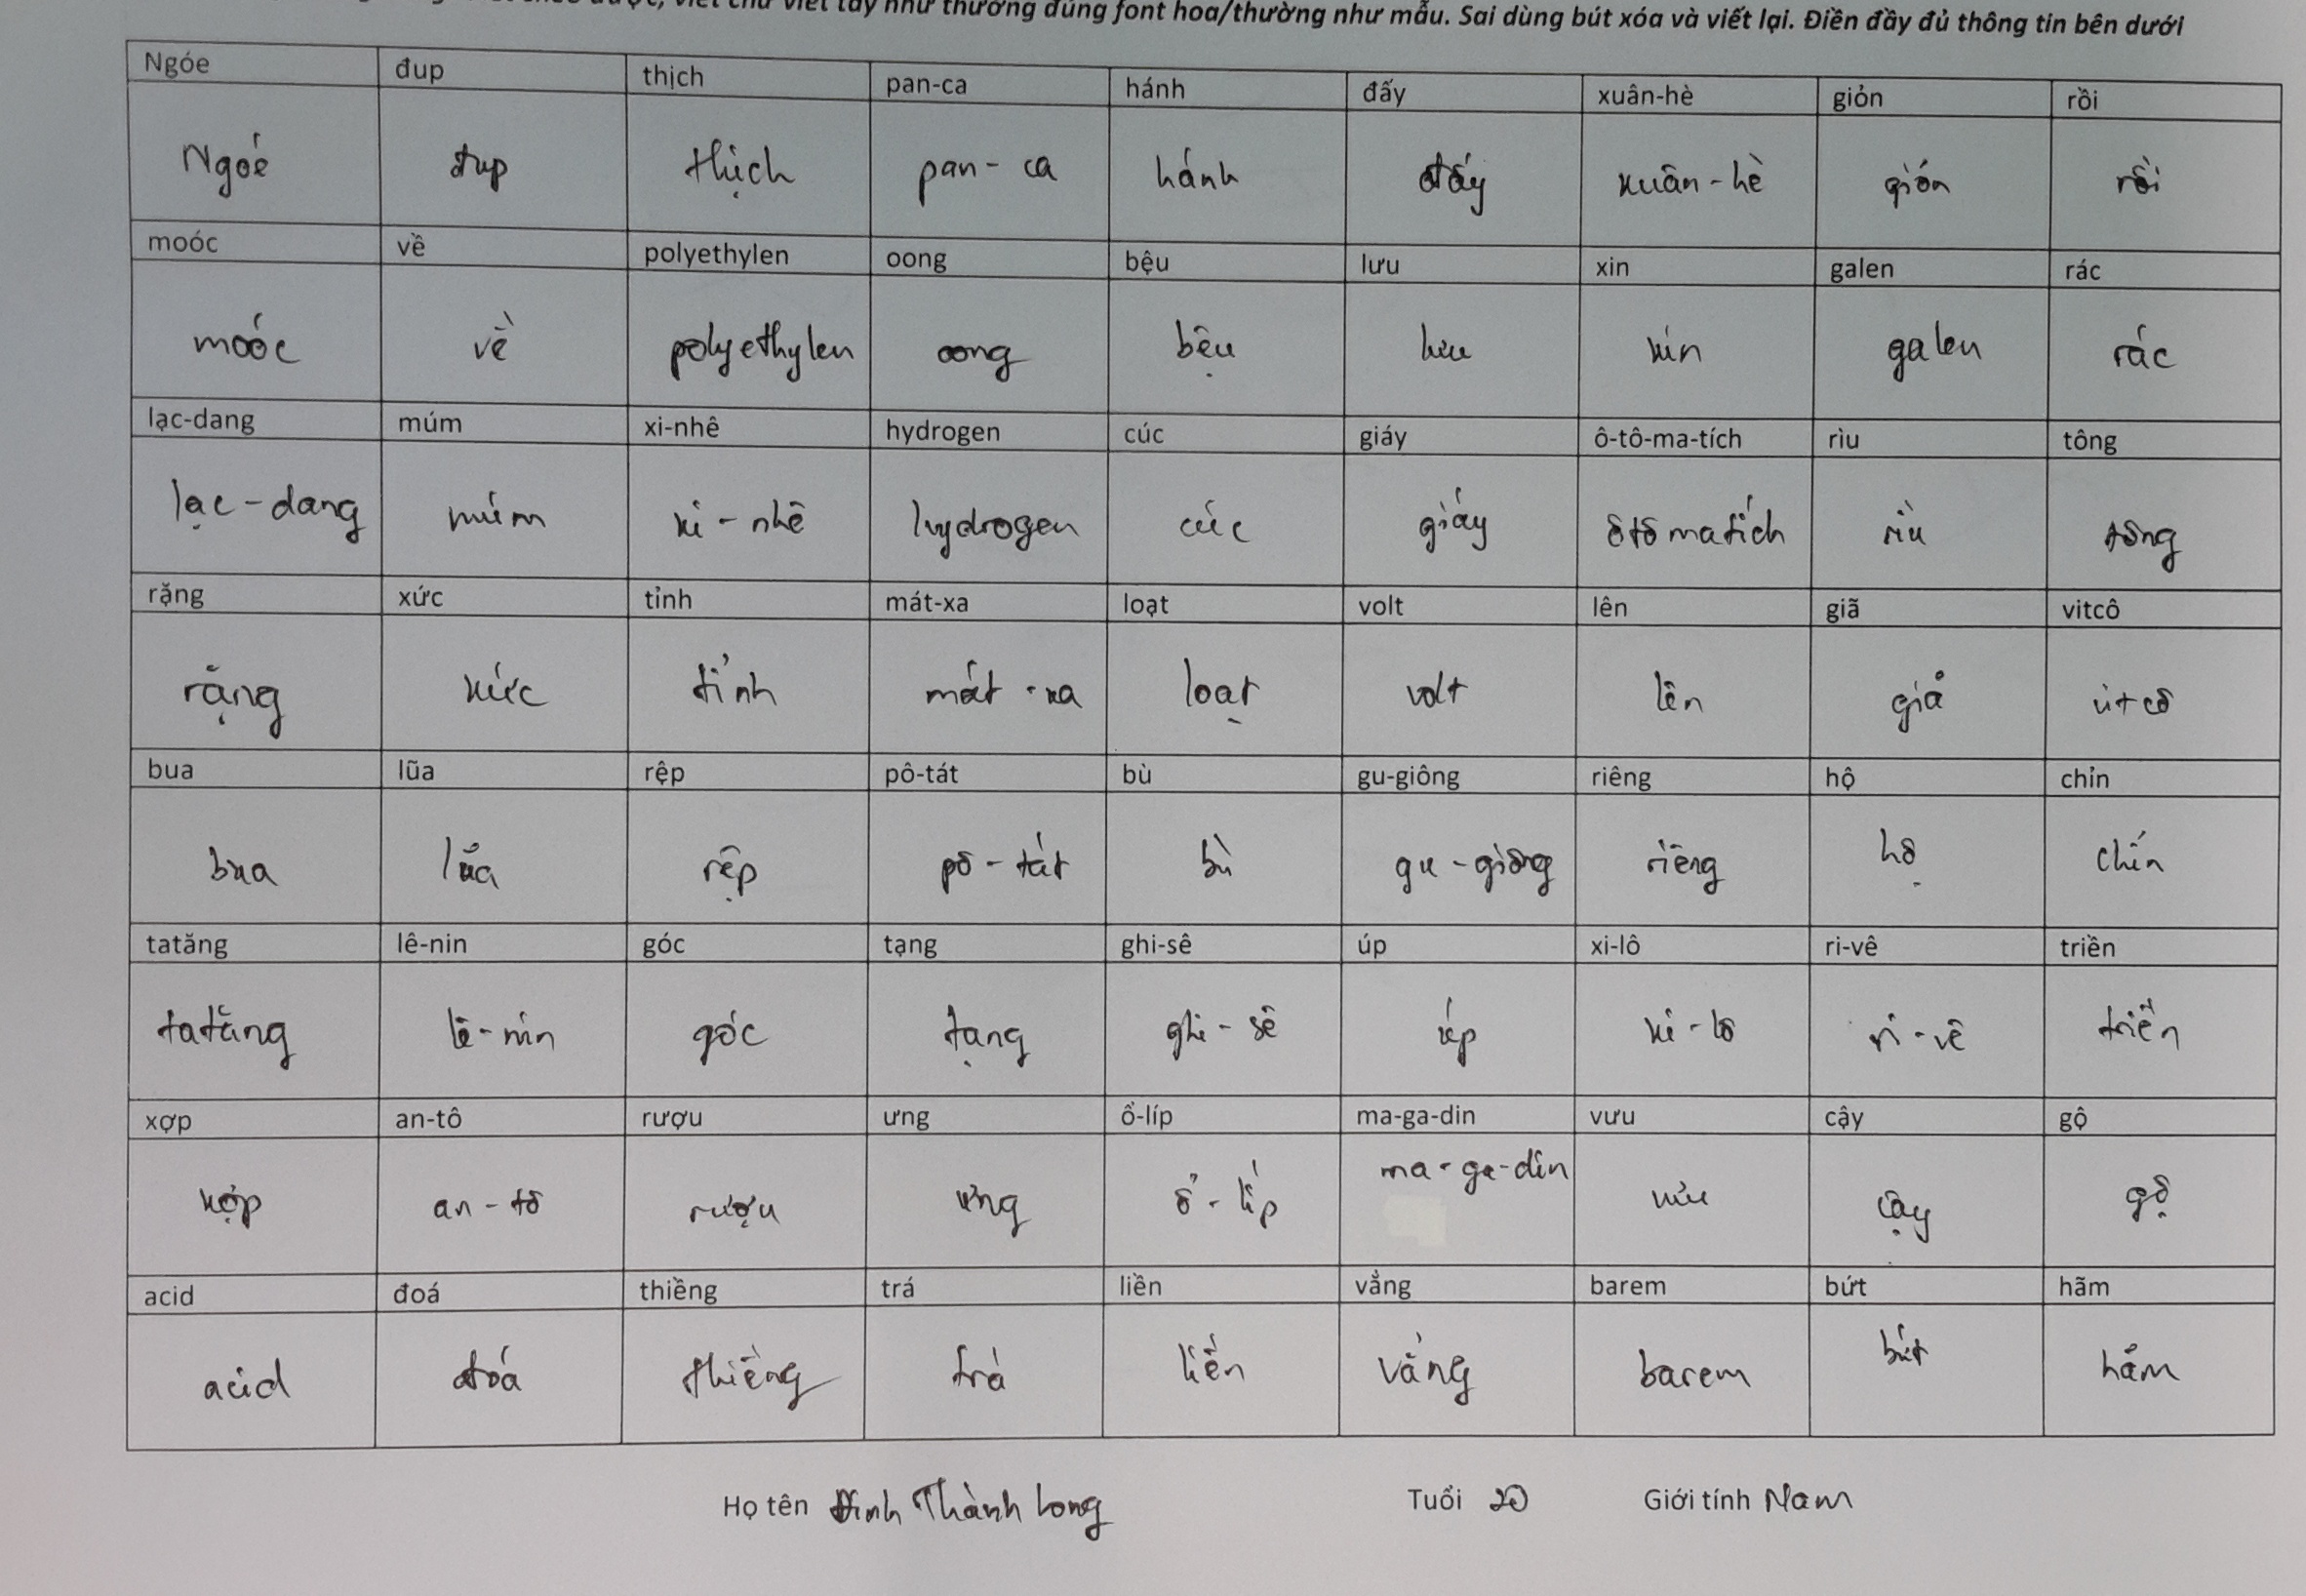 viết chữ viết tay như thường đúng font hoa/thường như mẫu. Sai dùng bút xóa và viết lại. Điền đầy đủ thông tin bên dưới
Ngóe đup thịch pan-ca hánh đấy xuân-hè giỏn rồi
Ngoé đup thịch pan-ca hánh đấy xuân-hè giỏn rồi
moóc về polyethylen oong bệu lưu xin galen rác
moóc về polyethylen oong bệu lưu xin galen rác
lạc-dang múm xi-nhê hydrogen cúc giáy ô-tô-ma-tích rìu tông
lạc-dang múm xi-nhê hydrogen cúc giáy ôtômatích rìu tông
rặng xức tỉnh mát-xa loạt volt lên giã vitcô
rặng xức tỉnh mát-xa loạt volt lên giã vitcô
bua lũa rệp pô-tát bù gu-giông riêng hộ chỉn
bua lũa rệp pô-tát bù gu-giông riêng hộ chỉn
tatăng lê-nin góc tạng ghi-sê úp xi-lô ri-vê triền
tatăng lê-nin góc tạng ghi-sê úp xi-lô ri-vê triền
xợp an-tô rượu ưng ổ-líp ma-ga-din vưu cậy gộ
xợp an-tô rượu ưng ổ-líp ma-ga-din vưu cậy gộ
acid đoá thiềng trá liền vẳng barem bứt hãm
acid đoá thiềng trá liền vẳng barem bứt hãm
Họ tên Đinh Thành Long Tuổi 20 Giới tính Nam